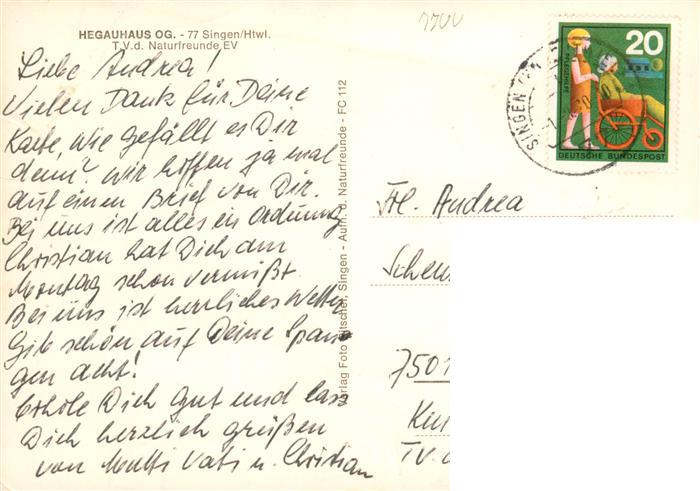 HEGAUHAUS OG. - 77 Singen/Htwl.
T.V.d. Naturfreunde EV
Liebe Andrea!
Vielen Dank für Deine
Karte, wie gefällt es Dir
denn? Wir hoffen ja mal
auf einen Brief von Dir.
Bei uns ist alles in Ordnung
Christian hat Dich am
Montag schon vermißt.
Bei uns ist herrliches Wetter
Gib schön auf Deine Span-
gen acht!
Erhole Dich gut und lass
Dich herzlich grüßen
von Mutti Vati u. Christian
Verlag Foto Ottscher, Singen - Aufn. d. Naturfreunde - FC 112
7700
SINGEN
20
PFLEGEHILFE
DEUTSCHE BUNDESPOST
Frl. Andrea
Scheu
7501
TV.